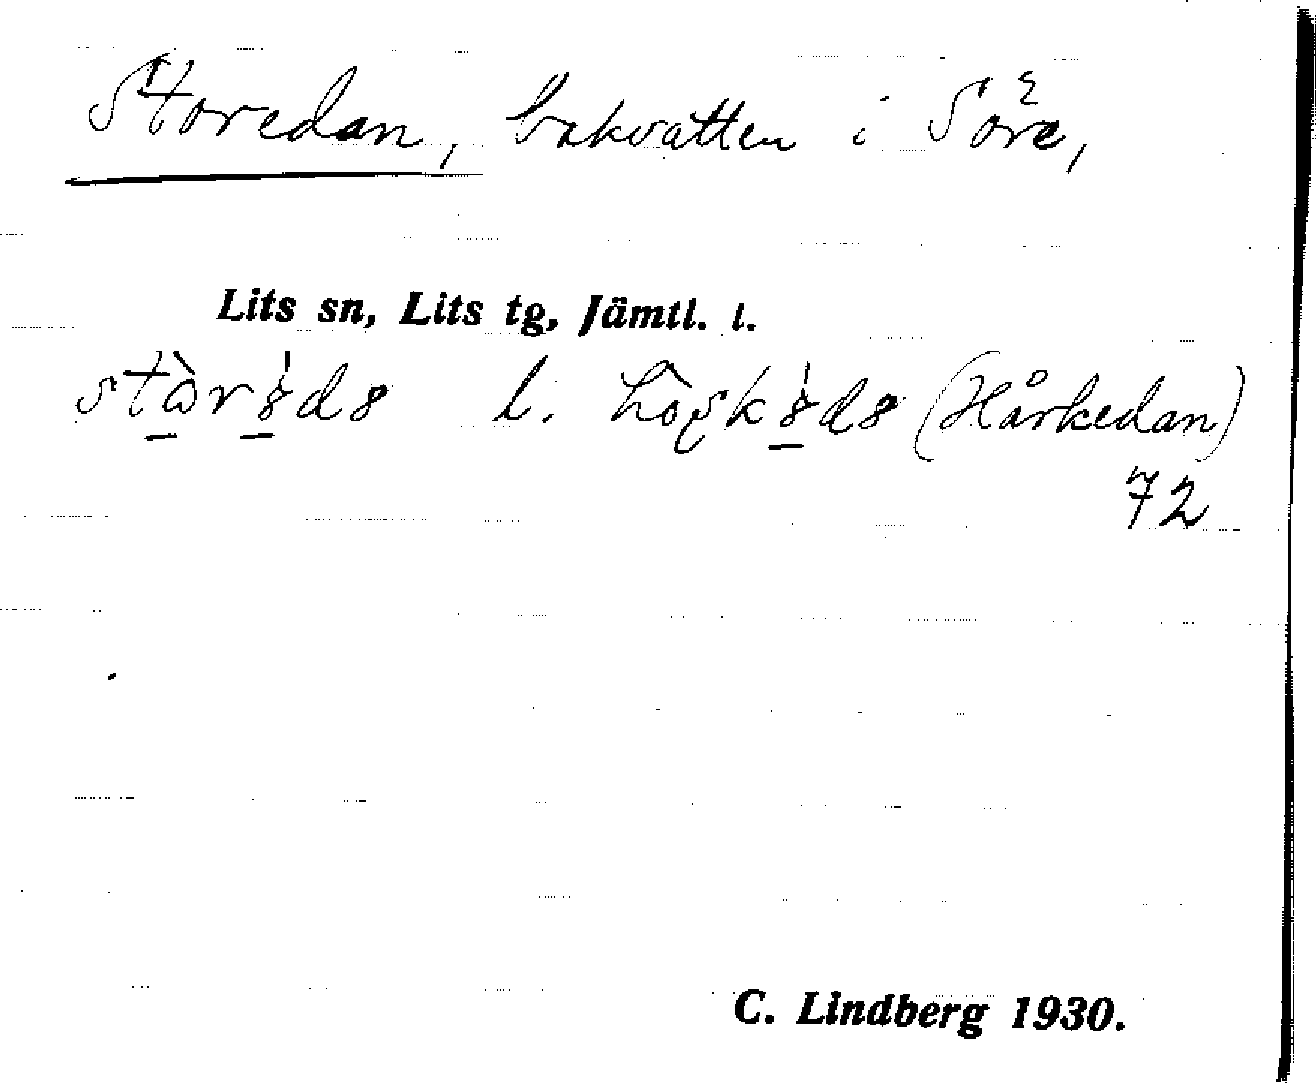 Storedan, bakvatten i Söre,
Lits sn, Lits tg, Jämtl. l.
l. (Hårkedan)
72
C. Lindberg 1930.